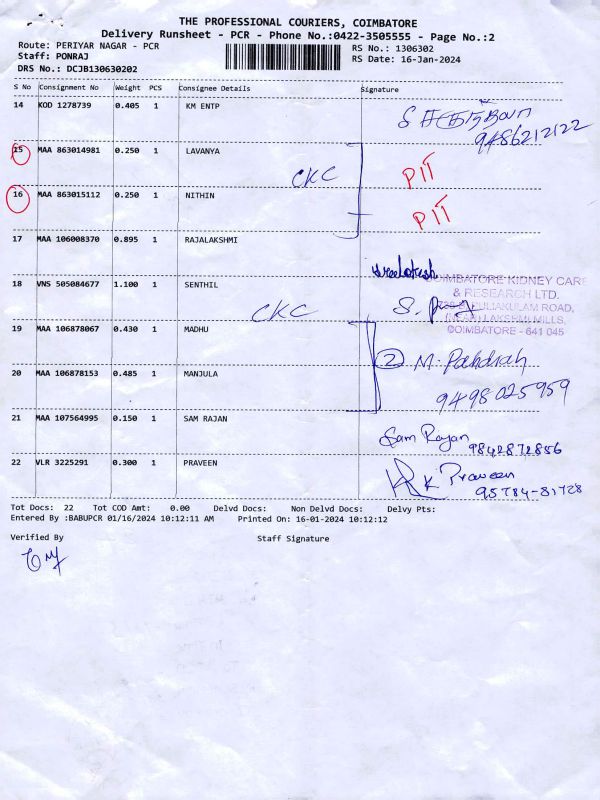 THE PROFESSIONAL COURIERS, COIMBATORE
Delivery Runsheet - PCR - Phone No.:0422-3505555 - Page No.:2
Route: PERIYAR NAGAR - PCR
RS No.: 1306302
Staff: PONRAJ
RS Date: 16-Jan-2024
DRS No.: DCJB130630202
S No Consignment No Weight PCS Consignee Details Signature
14 KOD 1278739 0.405 1 KM ENTP
9486212122
15 MAA 863014981 0.250 1 LAVANYA
CKC PIT
16 MAA 863015112 0.250 1 NITHIN
PIT
17 MAA 106008370 0.895 1 RAJALAKSHMI
18 VNS 505084677 1.100 1 SENTHIL
COIMBATORE KIDNEY CARE
& RESEARCH LTD.
PULIAKULAM ROAD,
LAKSHMI MILLS,
COIMBATORE - 641 045
CKC
19 MAA 106878067 0.430 1 MADHU
2 M.
20 MAA 106878153 0.485 1 MANJULA
9498025959
21 MAA 107564995 0.150 1 SAM RAJAN
Sam Rajan 9842872856
22 VLR 3225291 0.300 1 PRAVEEN
K Praveen
95784-81728
Tot Docs: 22 Tot COD Amt: 0.00 Delvd Docs: Non Delvd Docs: Delvy Pts:
Entered By :BABUPCR 01/16/2024 10:12:11 AM Printed On: 16-01-2024 10:12:12
Verified By Staff Signature